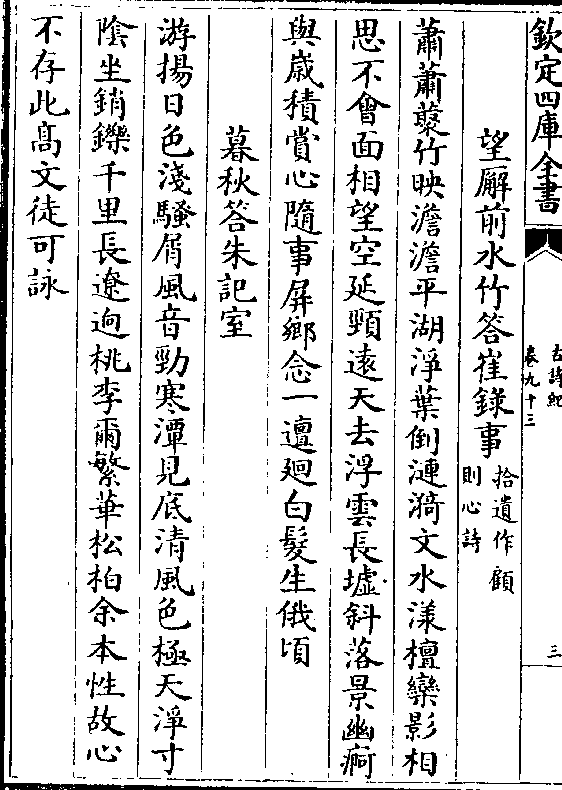 欽定四庫全書
古詩紀
卷九十三
三
望廨前水竹答崔錄事
拾遺作顧
則心詩
蕭蕭藂竹映澹澹平湖淨葉倒漣漪文水漾檀欒影相
思不會面相望空延頸遠天去浮雲長墟斜落景幽痾
與歲積賞心隨事屏鄉念一邅廻白髮生俄頃
暮秋答朱記室
游揚日色淺騷屑風音勁寒潭見底清風色極天淨寸
陰坐銷鑠千里長遼逈桃李爾繁華松柏余本性故心
不存此高文徒可詠